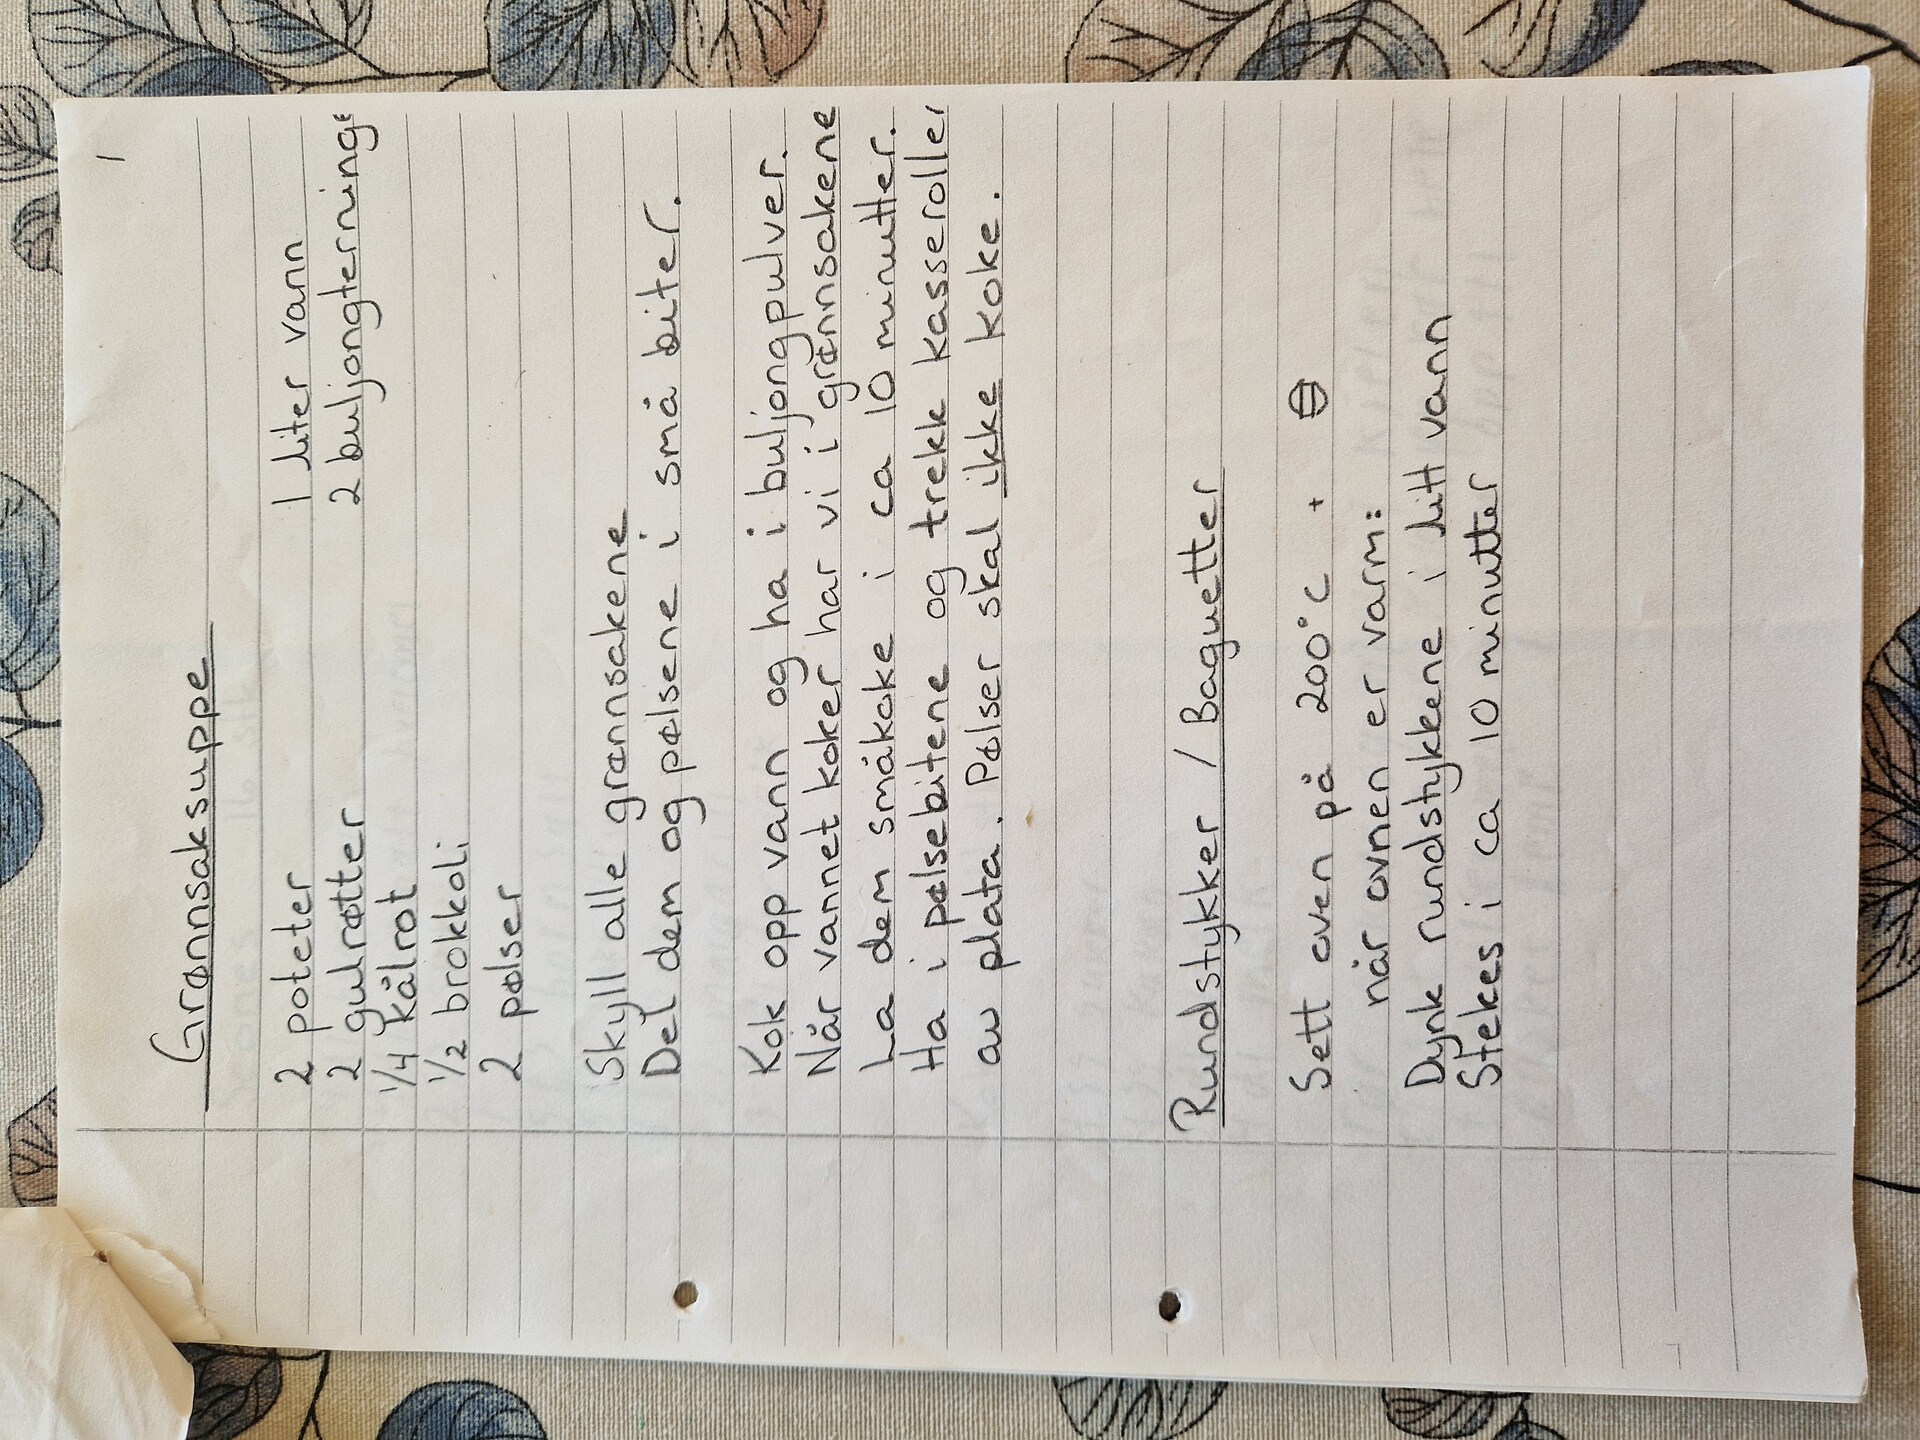 1
Grønnsaksuppe
2 poteter 1 liter vann
2 gulrøtter 2 buljongterninge
1/4 kålrot
1/2 brokkoli
2 pølser
Skyll alle grønnsakene
Del dem og pølsene i små biter.
Kok opp vann og ha i buljongpulver.
Når vannet koker har vi i grønnsakene
La dem småkoke i ca 10 minutter.
Ha i pølsebitene og trekk kasseroller
av plata. Pølser skal ikke koke.
Rundstykker / Baguetter
Sett oven på 200°C +
når ovnen er varm:
Dynk rundstykkene i litt vann
Stekes i ca 10 minutter